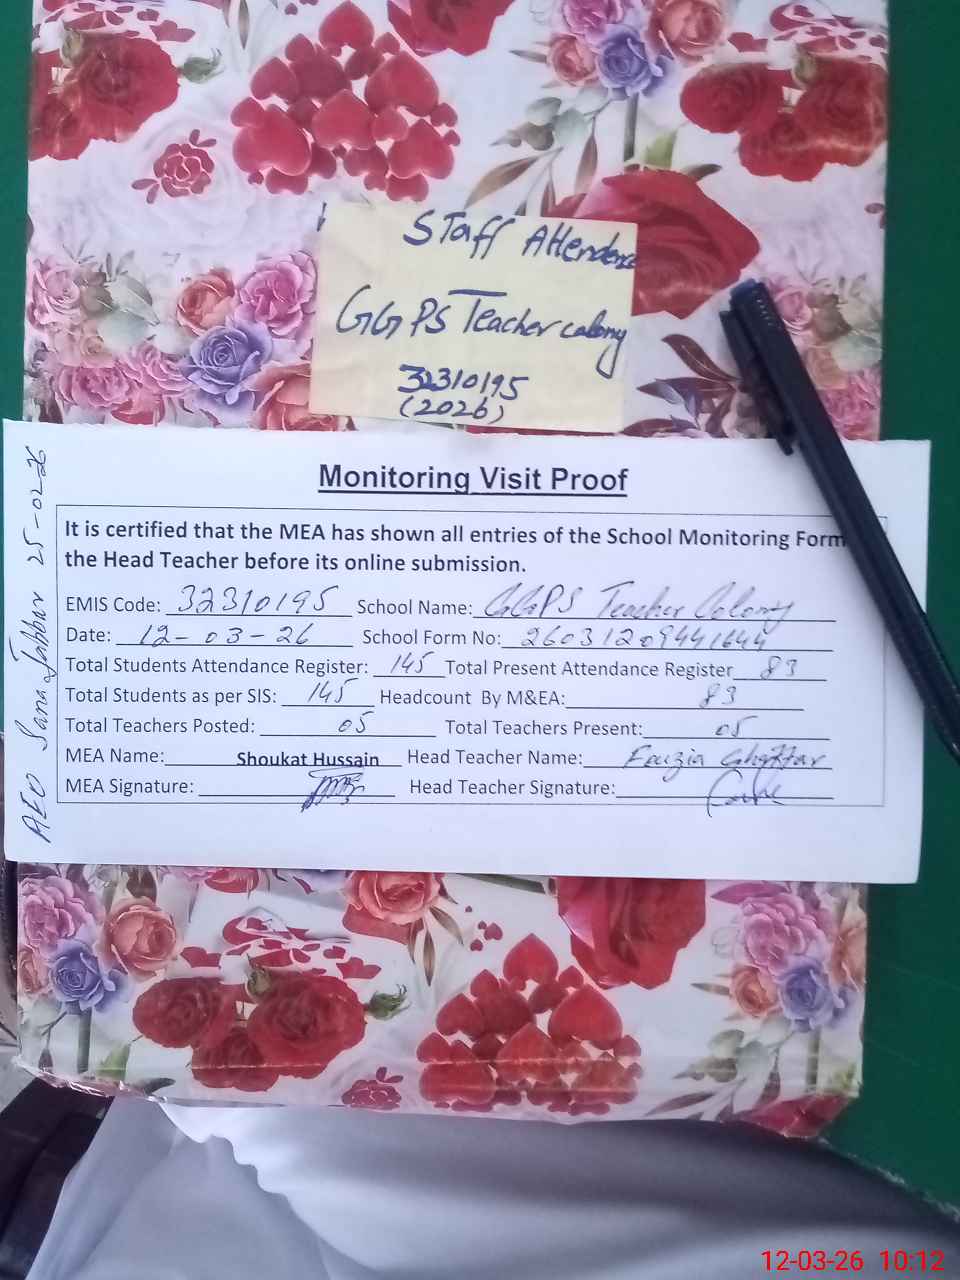 Staff Attendence
GGPS Teacher colony
32310195
(2026)
Monitoring Visit Proof
It is certified that the MEA has shown all entries of the School Monitoring Form
the Head Teacher before its online submission.
EMIS Code: 32310195 School Name: GGPS Teacher Colony
Date: 12-03-26 School Form No: 26031209441644
Total Students Attendance Register: 145 Total Present Attendance Register 83
Total Students as per SIS: 145 Headcount By M&EA: 83
Total Teachers Posted: 05 Total Teachers Present: 05
MEA Name: Shoukat Hussain Head Teacher Name: Fouzia Ghaffar
MEA Signature: Head Teacher Signature:
AEO Sana Jabbar 25-02-26
12-03-26 10:12